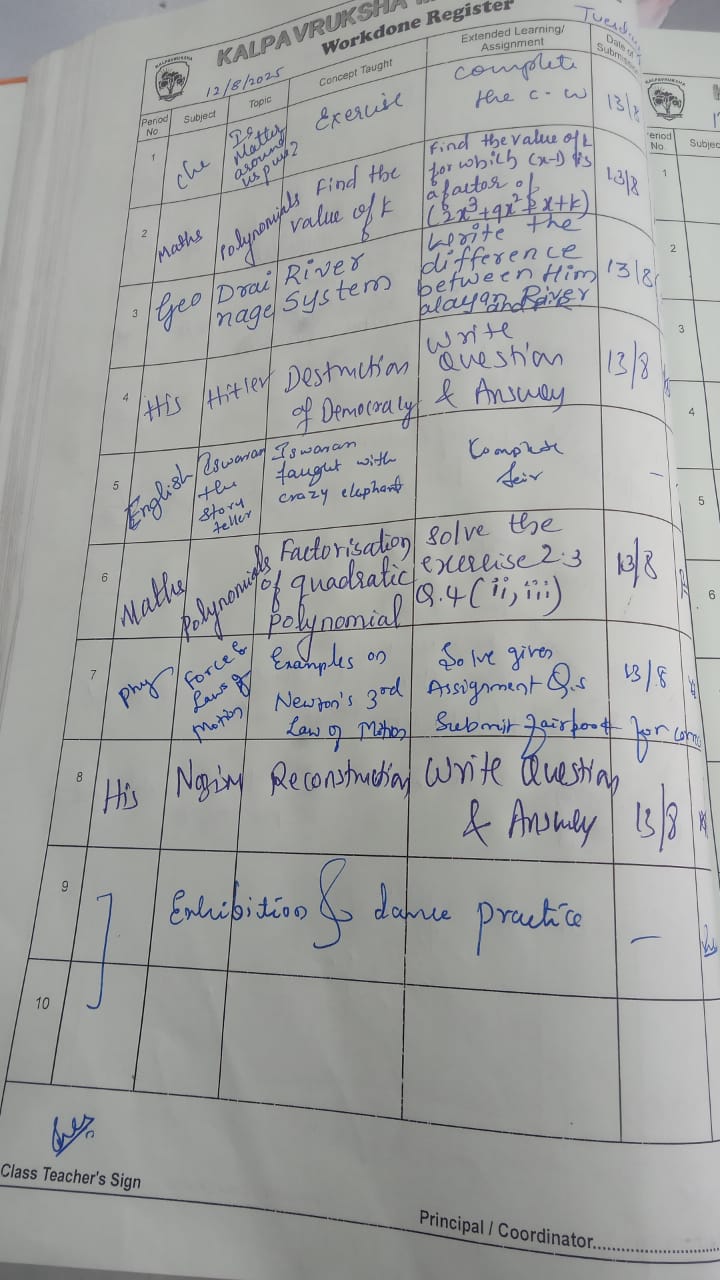 KALPAVRUKSHA
Workdone Register
12/8/2025
Tuesday
Period No
Subject
Topic
Concept Taught
Extended Learning/ Assignment
Date of Submission
1
Che
Is
Matter
around
us pure?
Exercise
Complete
the c-w
13/8
2
Maths
Polynomials
Find the
value of k
Find the value of k
for which (x-1) is
a factor of
13/8
3
Geo
Drai
nage
River
System
Write the
difference
between Him
alayan and River
13/8
4
His
Hitler
Destruction
of Democracy
Write
Question
& Answer
13/8
5
English
Iswaran
the
story
teller
Iswaran
taught with
crazy elephant
Complete
—
6
Maths
Polynomials
Factorisation
of quadratic
polynomial
Solve the
exercise 2.3
Q.4 (ii, iii)
13/8
7
Phy
Force &
Laws of
Motion
Examples on
Newton's 3rd
Law of Motion
Solve given
Assignment Q.s
Submit fairbook for
13/8
8
His
Nazism
Reconstruction
Write Question
& Answer
13/8
9
Exhibition & dance practice
—
10
Class Teacher's Sign
Principal / Coordinator
KALPAVRUKSHA
Period
No.
Subjec
1
2
3
4
5
6